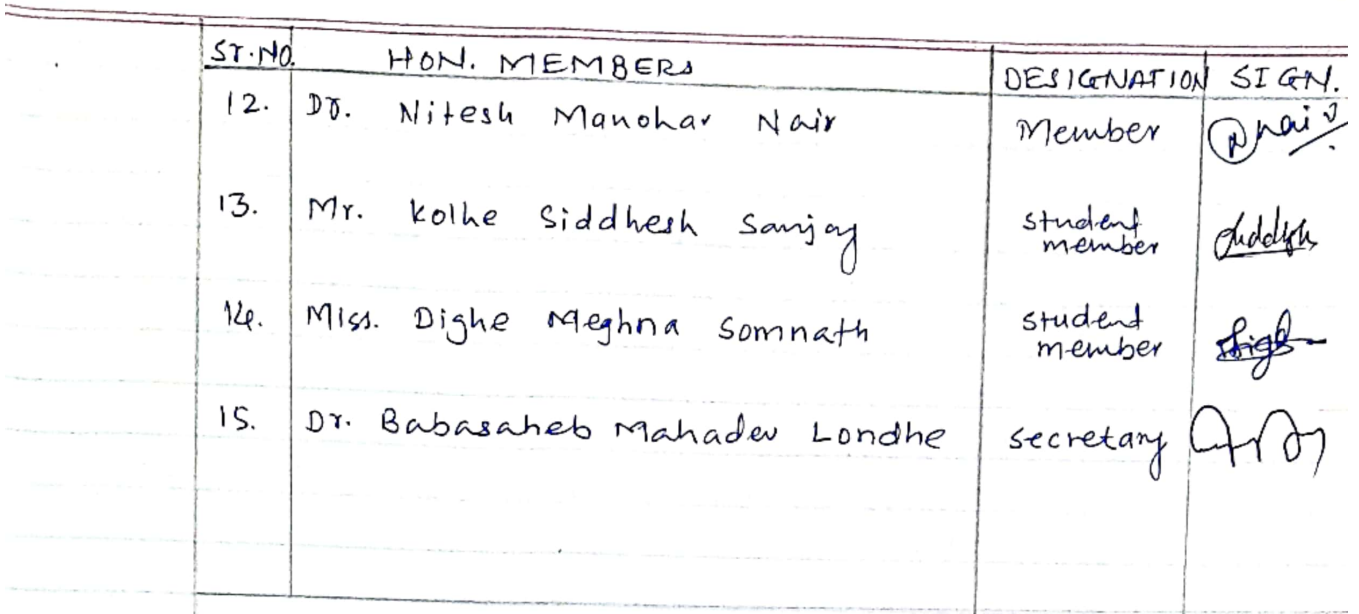 Sr.NO. HON. MEMBERS DESIGNATION SIGN.
12. Dr. Nitesh Manohar Nair Member
13. Mr. Kolhe Siddhesh Sanjay student
member
14. Miss. Dighe Meghna Somnath student
member
15. Dr. Babasaheb Mahadev Londhe secretary